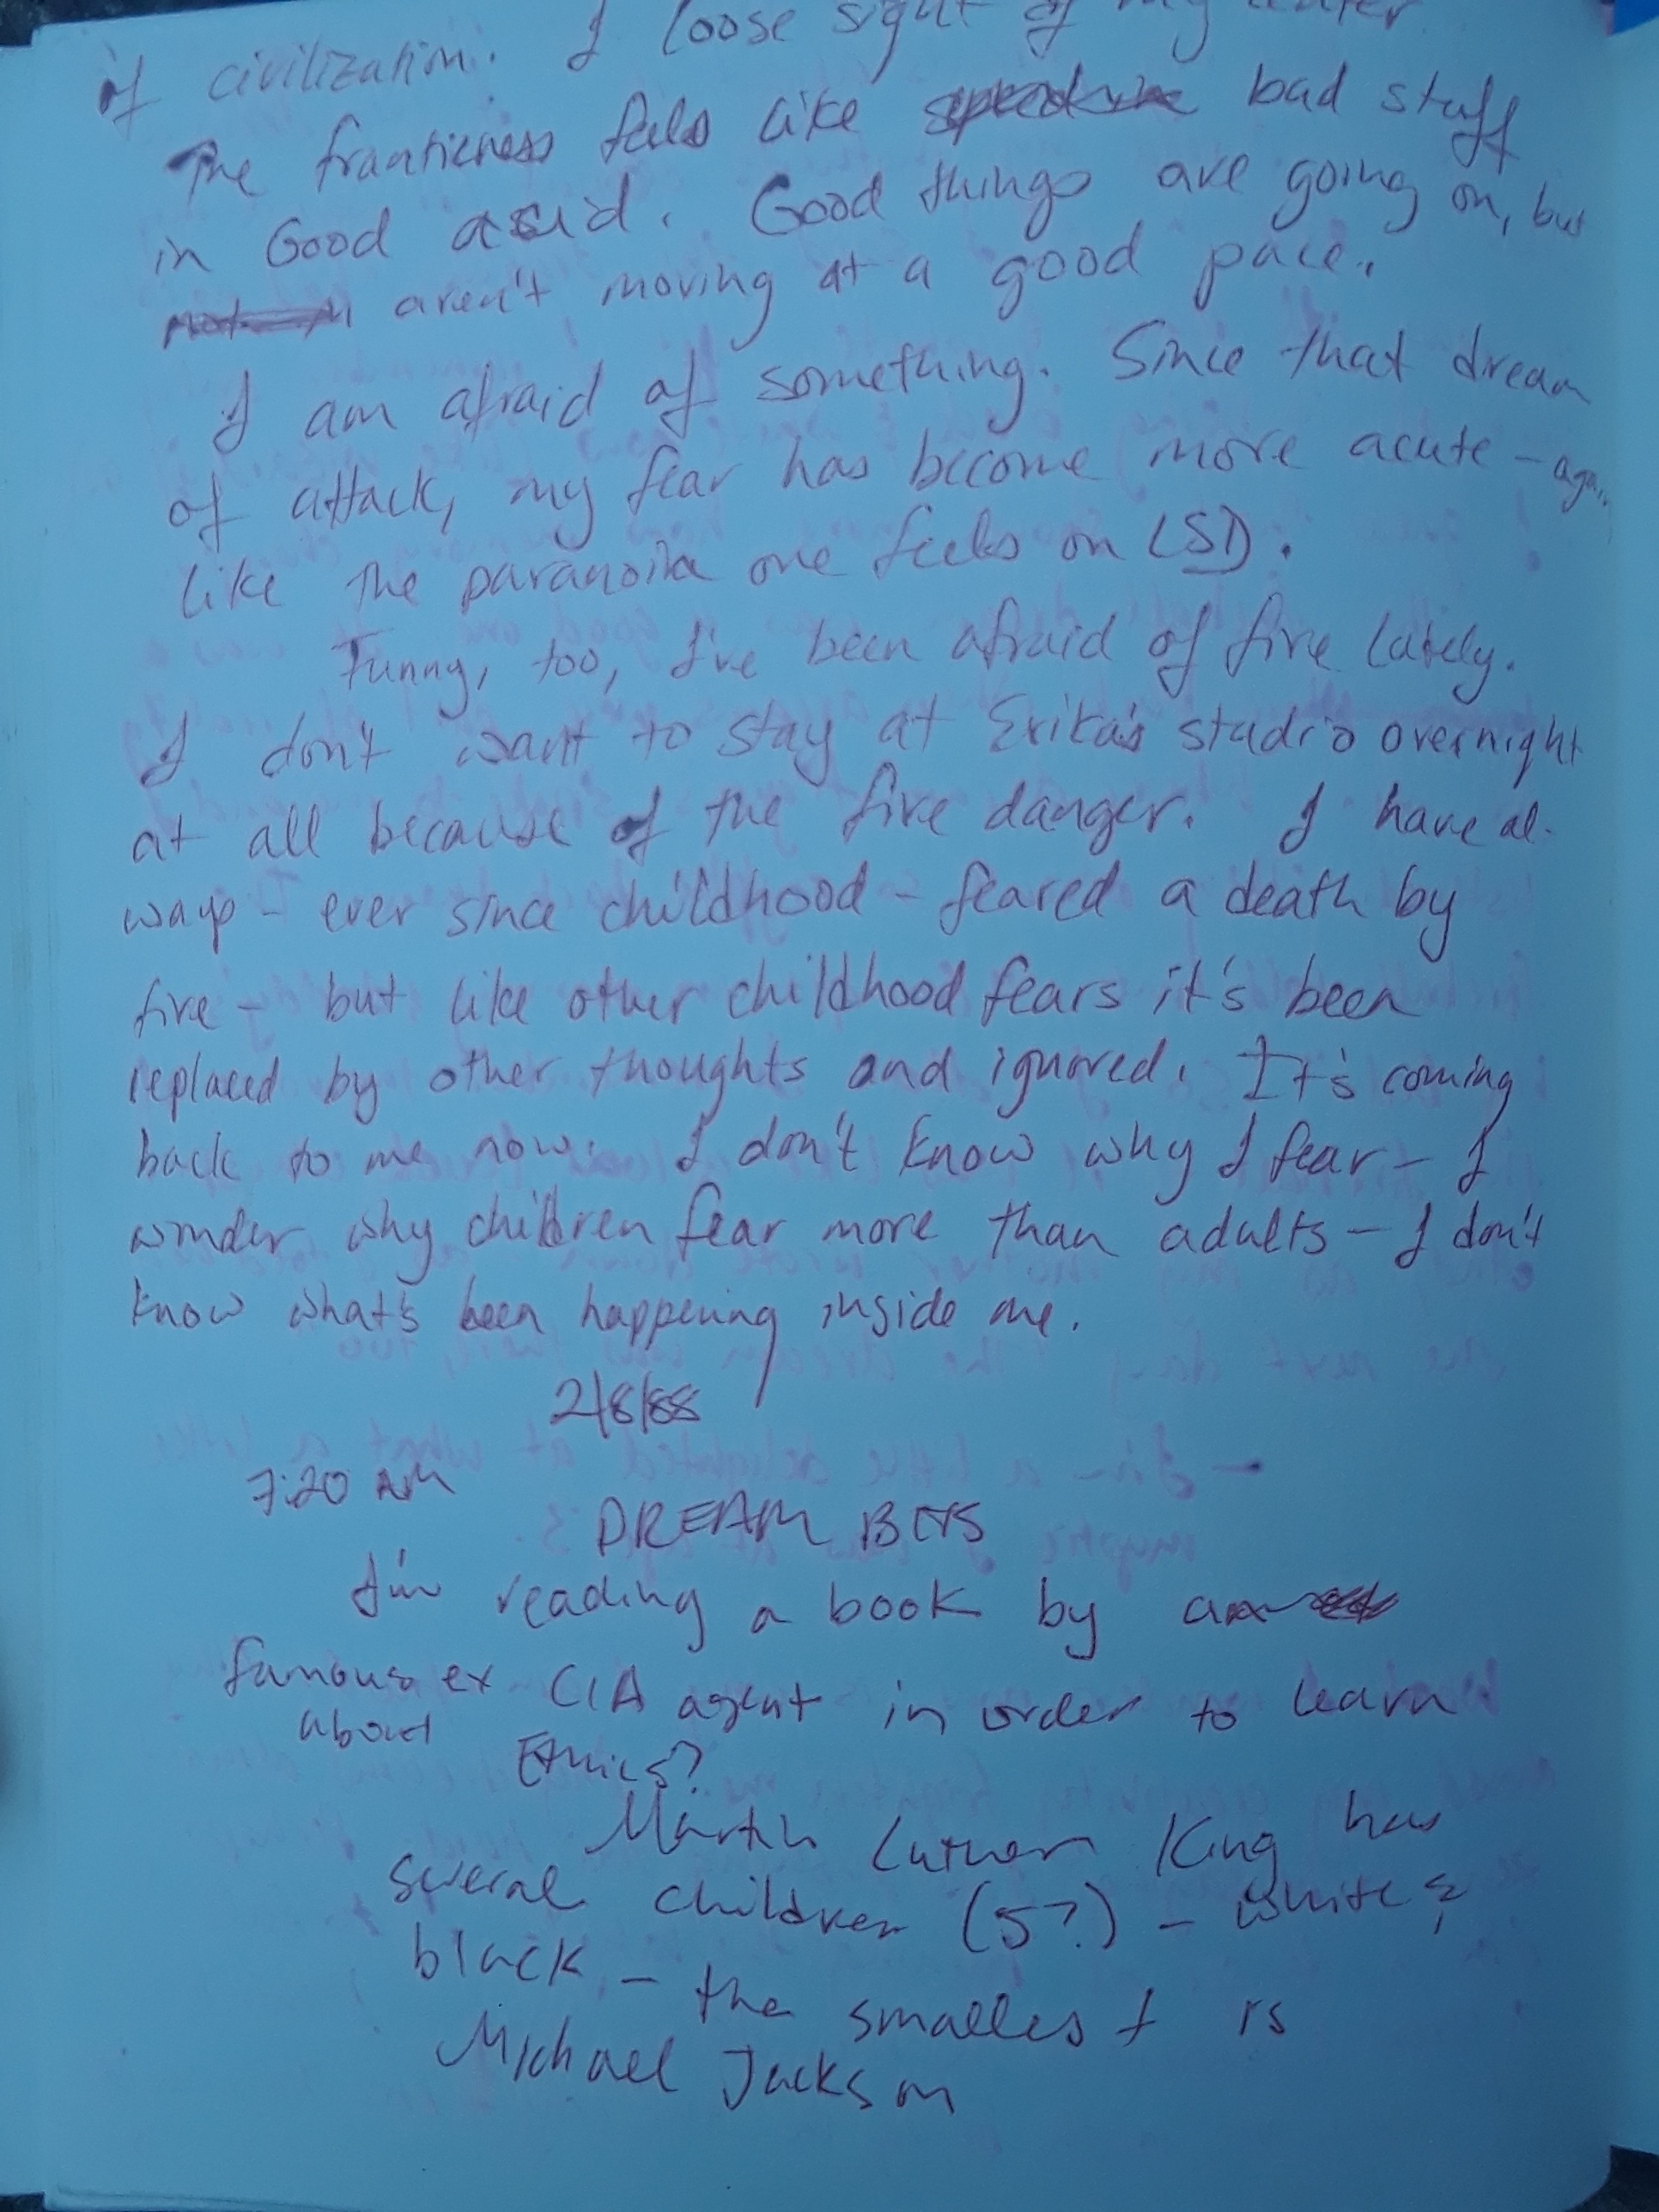 of civilization. I loose sight of my center
The franticness feels like bad stuff
in Good acid. Good things are going on, but
aren't moving at a good pace.
I am afraid of something. Since that dream
of attack, my fear has become more acute - again
like the paranoia one feels on LSD.
Funny, too, I've been afraid of fire lately.
I don't want to stay at Erika's studio overnight
at all because of the fire danger. I have al-
ways - ever since childhood - feared a death by
fire - but like other childhood fears it's been
replaced by other thoughts and ignored. It's coming
back to me now. I don't know why I fear - I
wonder why children fear more than adults - I don't
know what's been happening inside me.
2/8/88
7:20 AM
DREAM BITS
I'm reading a book by a
famous ex CIA agent in order to learn
about
Ethics?
Martin Luther King has
several children (5?) - white &
black - the smallest is
Michael Jackson